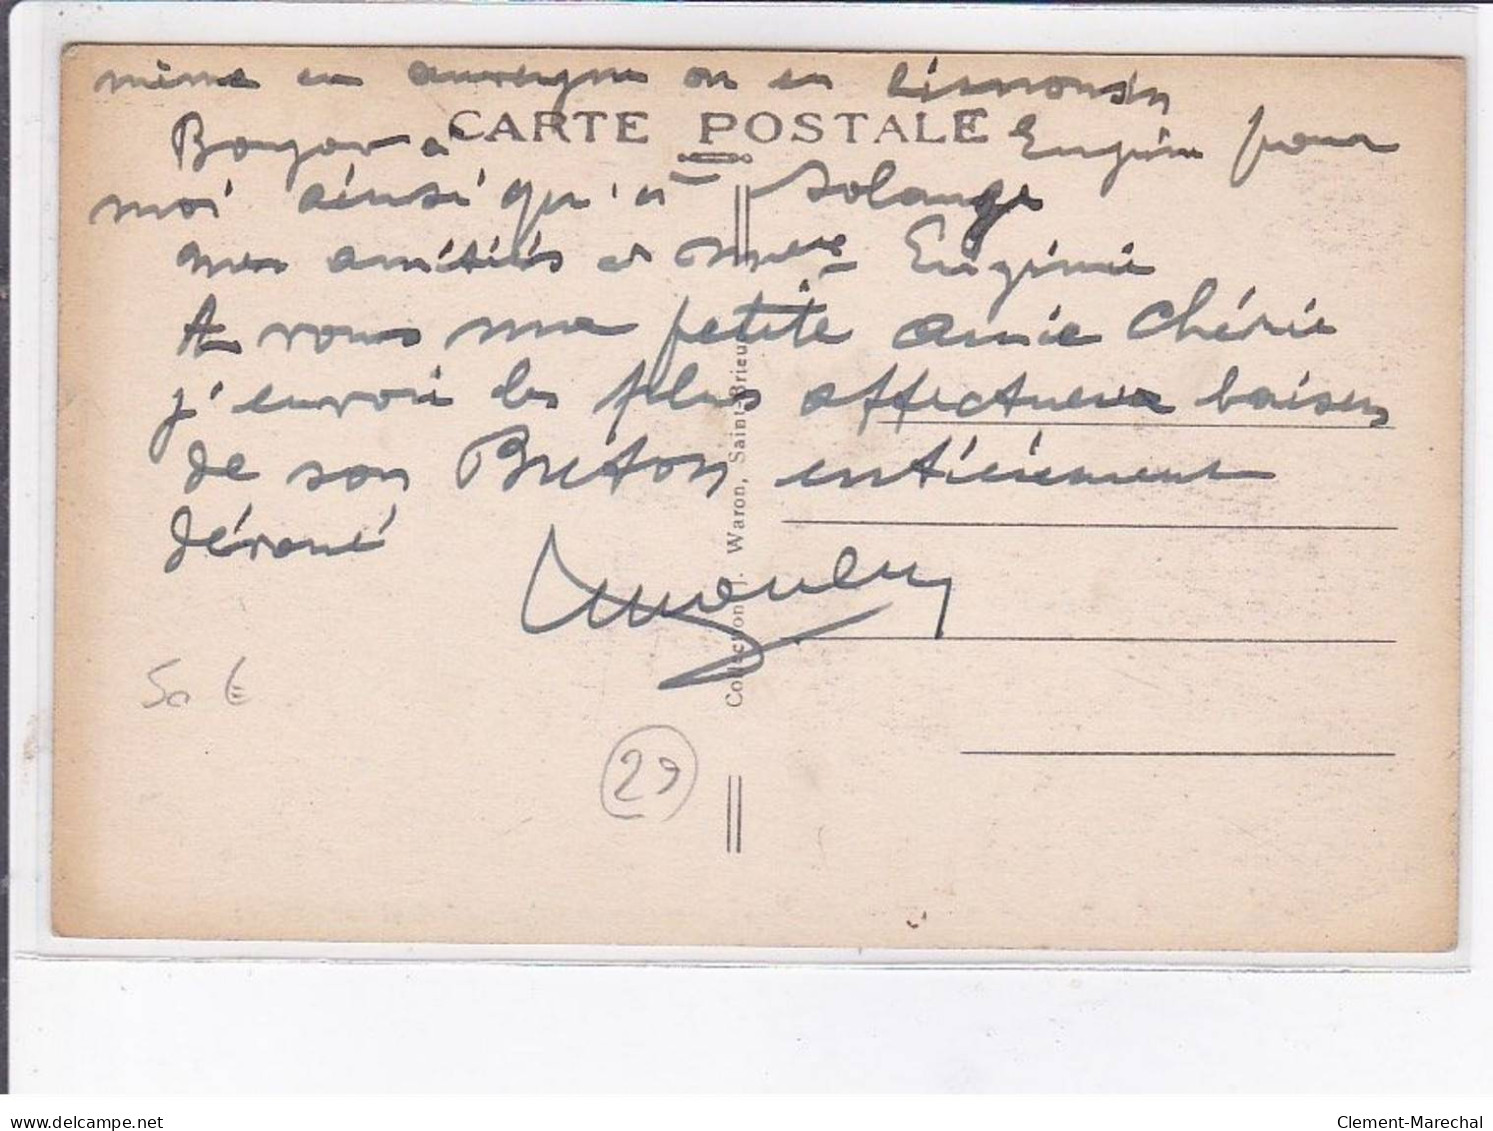 même en auvergne ou en Limousin
CARTE POSTALE
Bonjour à Eugénie pour
moi ainsi qu'à Solange
mes amitiés à Mme Eugénie
A vous ma petite amie chérie
j'envoie les plus affectueux baisers
de son Breton entièrement
dévoué
Collection J. Waron, Saint-Brieuc
50 €
29
delcampe.net
Clement-Marechal